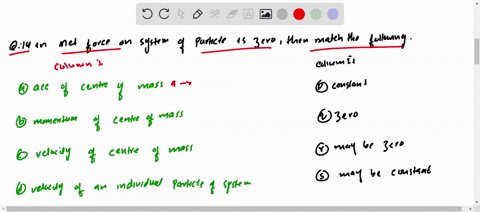 Q:14 in net force on system of Particle is zero, then match the following.
column I
column II
(a) acc of centre of mass a →
(p) constant
(b) momentum of centre of mass
(q) zero
(c) velocity of centre of mass
(r) may be zero
(d) velocity of an individual Particle of system
(s) may be constant